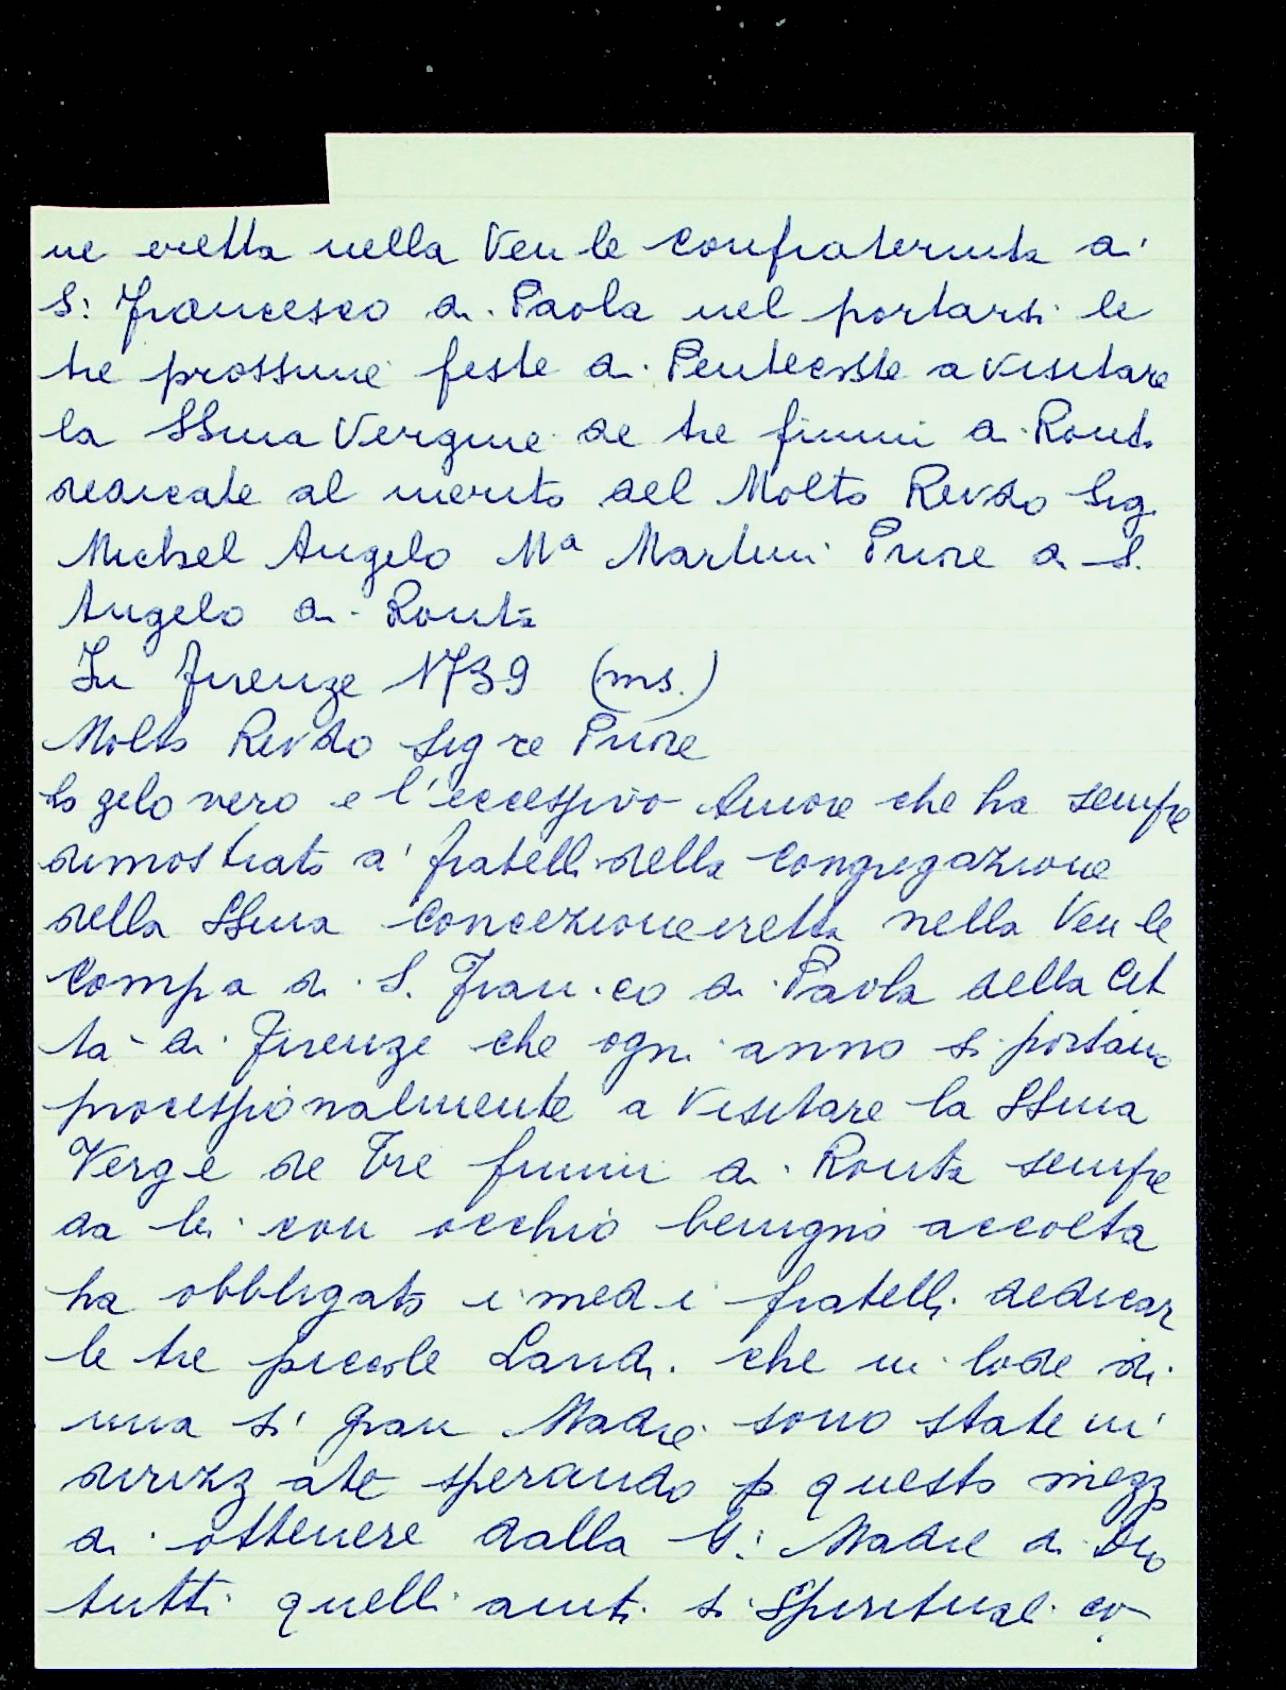 ne eretta nella Ven le Confraternita di
S: Francesco di Paola nel portarsi le
tre prossime feste di Pentecoste a visitare
la SSma Vergine de tre fiumi di Ronta
dedicate al merito del Molto Revdo Sig.
Michel Angelo Ma Martini Priore di S.
Angelo di Ronta
In Firenze 1739 (ms.)
Molto Revdo Sig re Priore
Lo zelo vero e l'eccessivo Amore che ha sempre
dimostrato a' fratelli della Congregazione
della SSma Concezione eretta nella Ven le
Compa di S. Fran.co di Paola della Cit
tà di Firenze che ogni anno si portano
processionalmente a Visitare la SSma
Verg e de Tre fiumi di Ronta sempre
da lei con occhio benigno accolta
ha obbligato i med i fratelli dedicar
le tre piccole Laudi che in lode di
una sì gran Madre sono state in
dirizz ate sperando p questo mezz
di ottenere dalla G: Madre di Dio
tutti quelli aiuti sì Spirituali co